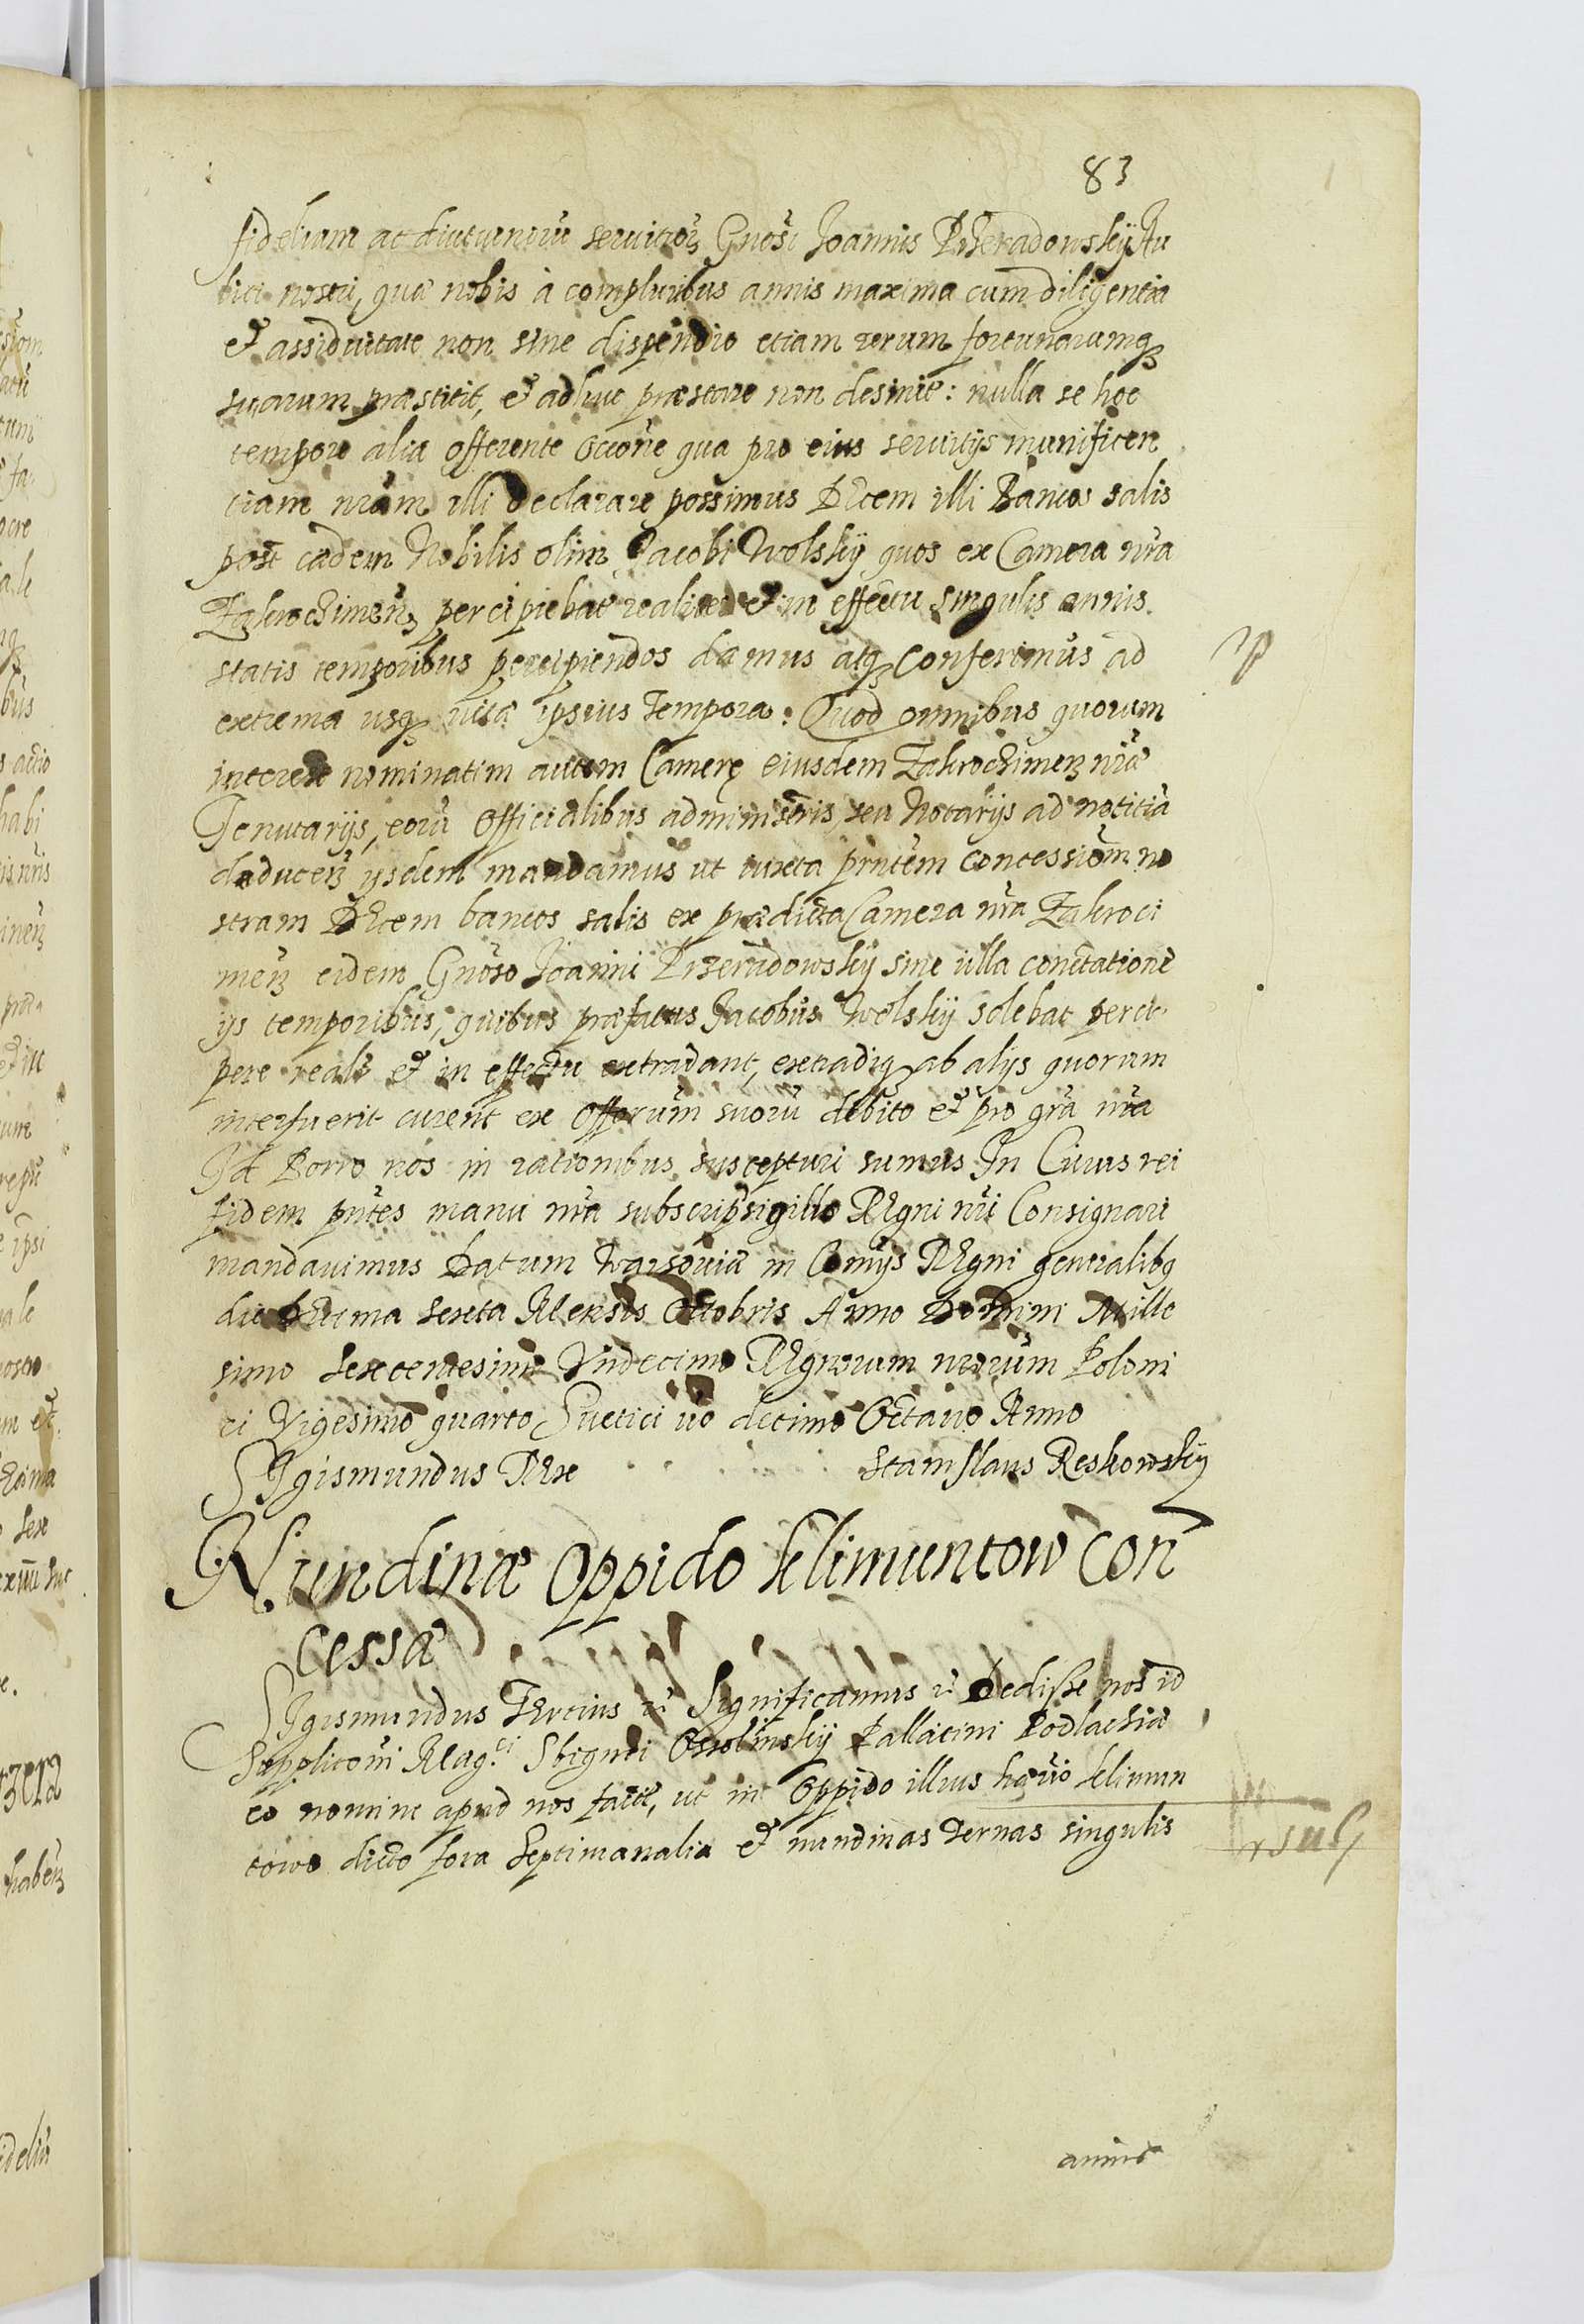 83
fidelium ac diuturnorū seruitiorꝫ Gnosi Joannis Przeradowskij Au
lici nostri, quæ nobis à compluribus annis maxima cum diligentia
et assiduitate non sine dispendio etiam rerum fortunarumqꝫ
suarum præstitit, et adhuc præstare non desinit: nulla se hoc
tempore alia offerente occōne qua pro eius seruitijs munificen
tiam nrām illi declarare possimus Decem illi Bancos salis
post cadem Nobilis olim Jacobi Wolskij quos ex Camera nrā
Zakrocimenꝫ percipiebat realiter et in effectu singulis annis
statis temporibus percipiendos damus atqꝫ conferimus ad
extrema usqꝫ vitæ ipsius tempora: Quod omnibus quorum
interest nominatim autem Camerę eiusdem Zakrochimenꝫ nræ
Tenutarijs, eorū Officialibus administris, seu Notarijs ad notitiā
deducenꝫ ijsdem mandamus ut iuxta prñtem concessionem no
stram Decem bancos salis ex prædicta Camera nrā Zakroci
menꝫ eidem Gnoso Joanni Przeradowskij sine ulla conctatione
ijs temporibus, quibus præfatus Jacobus Wolskij solebat perci
pere realr et in effectu extradant, extradiqꝫ ab alijs quorum
interfuerit curent ex Offorum suorū debito et pro grā nrā
Id Porro nos in rationibus suscepturi sumus In Cuius rei
fidem prñtes manu nrā subscrip sigillo Regni nri Consignari
mandauimus Datum Warsouiæ in Comijs Regni generalibꝫ
die decima sexta Mensis Octobris Anno Domini Mille
simo Sexcentesimo Vndecimo Regnorum nrorum Poloni
ci Vigesimo quarto Suetici uo decimo Octauo Anno
Sigismundus Rex Stanislaus Reskowskij
Nundinæ Oppido Klimuntow con
cessæ
Sigismundus Tertius etc Significamus etc Dedisse nos id
Supplicōni Mag.ci Sbignei Ossolinskij Pallatini Podlachiæ
eo nomine apud nos factæ, ut in Oppido illius hærio Klimun
towo dicto fora Septimanalia et nundinas ternas singulis
annis